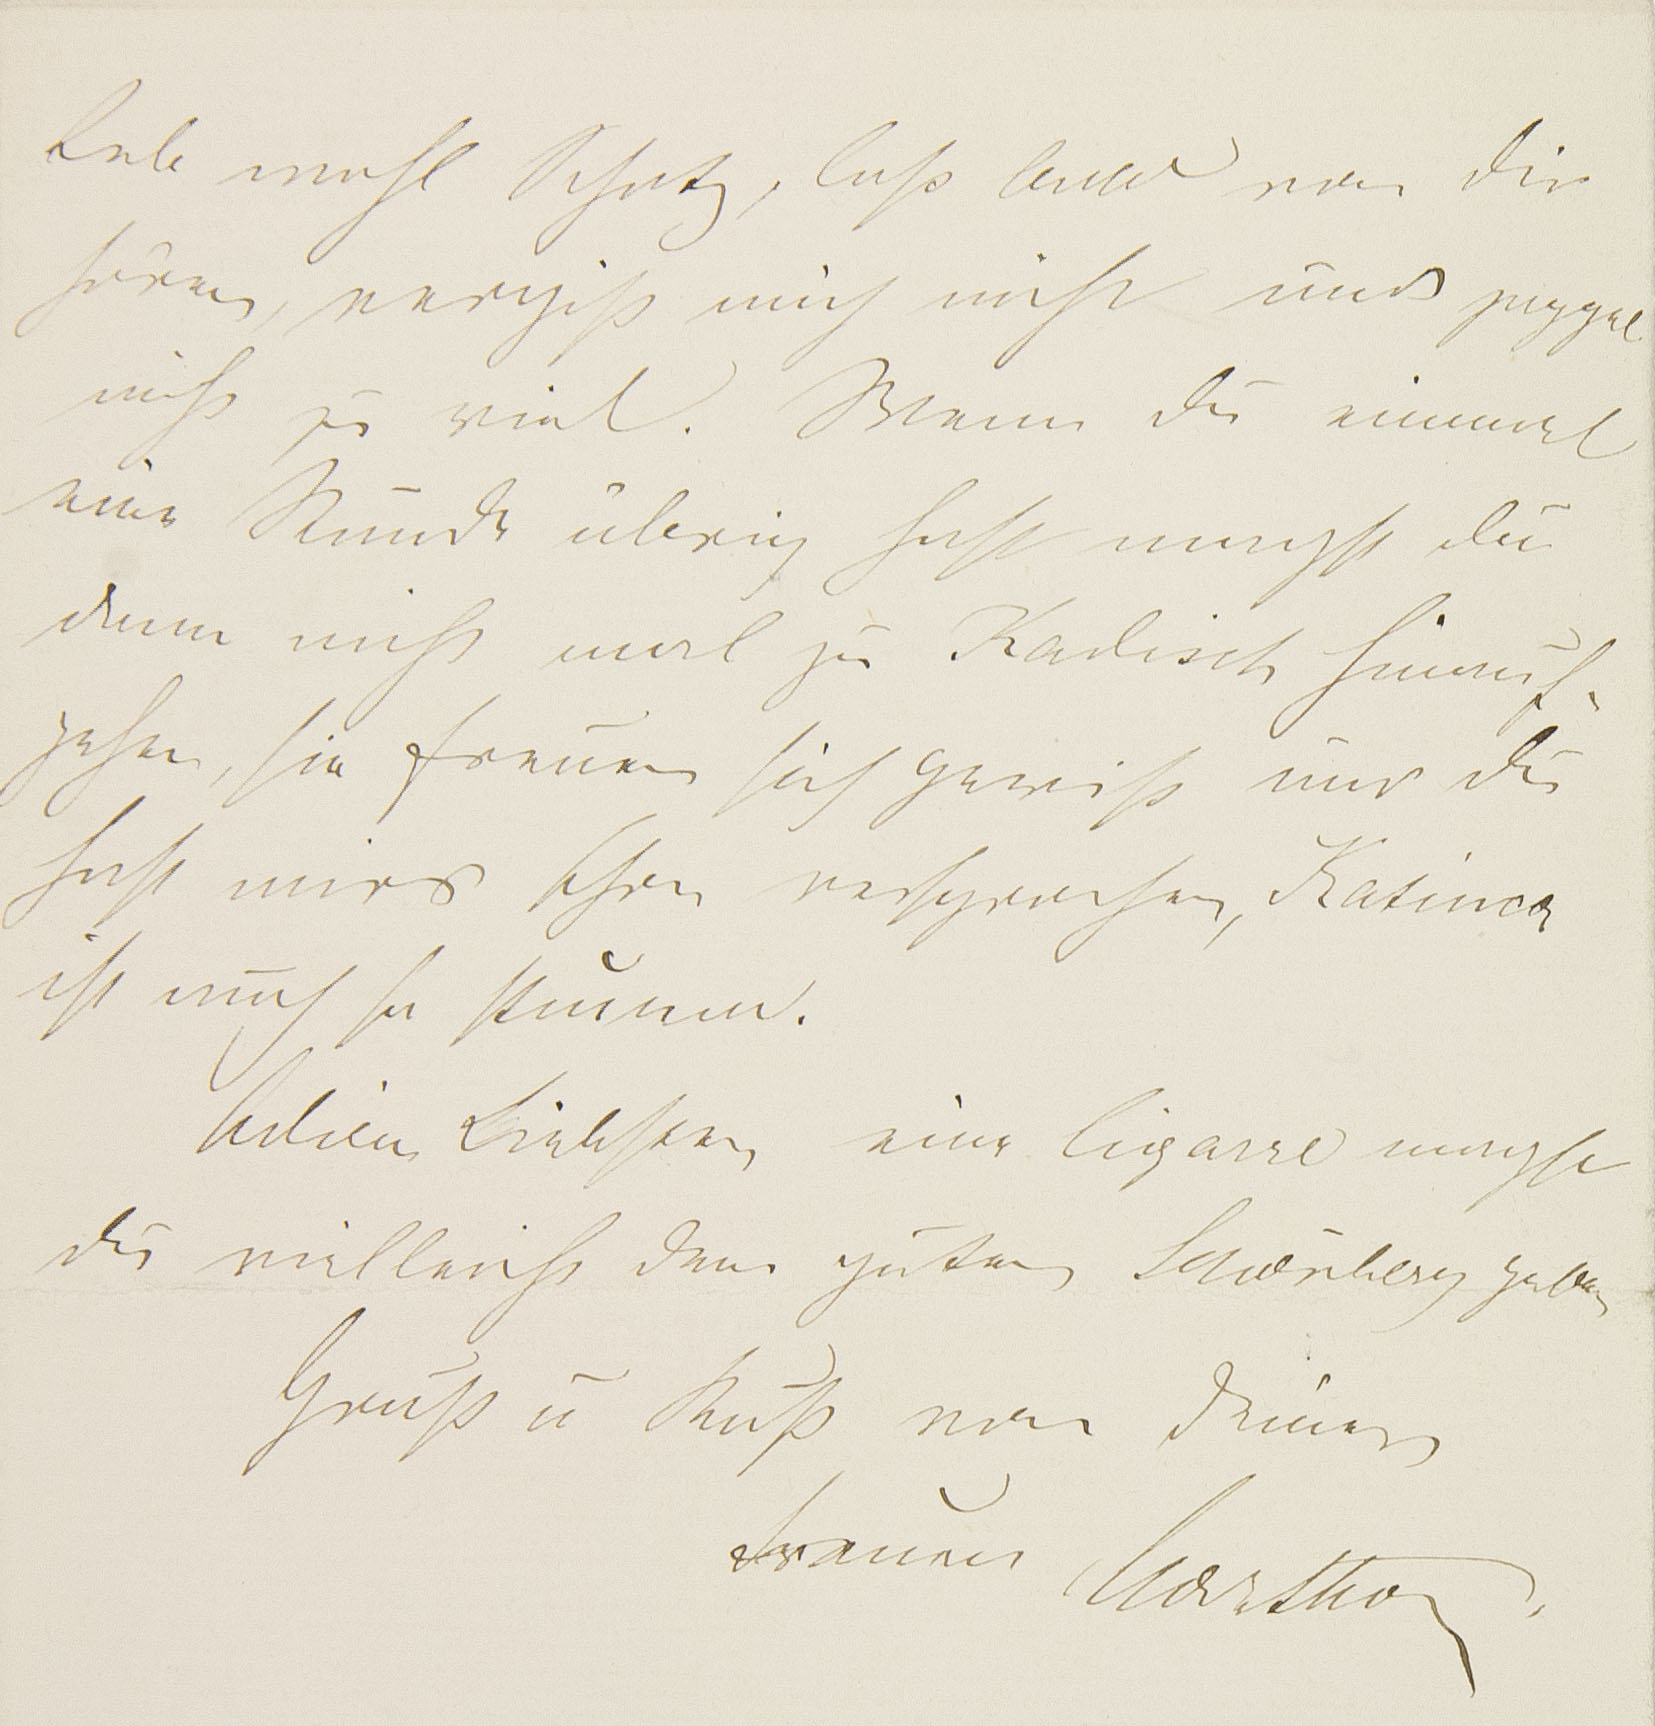 Lebe wohl Schatz, laß bald von Dir
hören, vergiß mich nicht und
nicht zu viel. Wenn Du einmal
eine Stunde übrig hast magst Du
denn nicht mal zu Kadisch hinauf-
gehen, sie freuen sich gewiß und Du
hast mirs schon versprochen, Katinca
ist auch so stumm.
Adieu Liebster, eine Cigarre magst
Du vielleicht dem guten Schönberg geben
Gruß u Kuß von Deiner
treuen Martha.